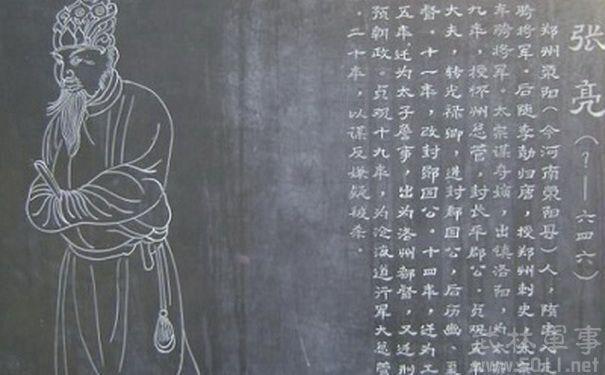 张亮（？——六四六）
郑州荥阳（今河南荥阳县）人，隋末
骑将军。后随李勣归唐，授郑州刺史
车骑将军。太宗谋夺嫡，出镇洛阳，为太
九年，授怀州总管，封长平郡公。贞观五年
大夫，转光禄卿，进封鄅国公，后历豳、夏
督。十一年，改封郧国公。十四年，迁为工
五年，迁为太子詹事，出为洛州都督，又迁刑
预朝政。贞观十九年，为沧海道行军大总管
。二十年，以谋反嫌疑被杀。
林軍事
www.5011.net